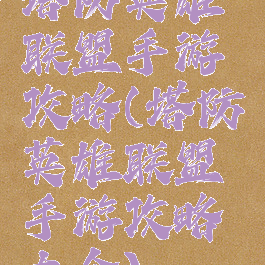 塔防英雄
联盟手游
攻略(塔防
英雄联盟
手游攻略
大全)